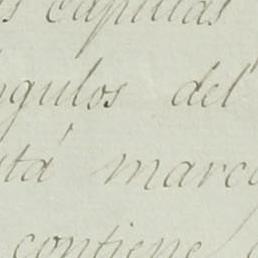 capillas
ngulos del
stá marc
contiene